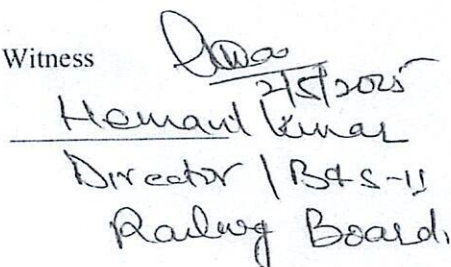 Witness
2/5/2025
Hemant Kumar
Director / B&S-II
Railway Board.